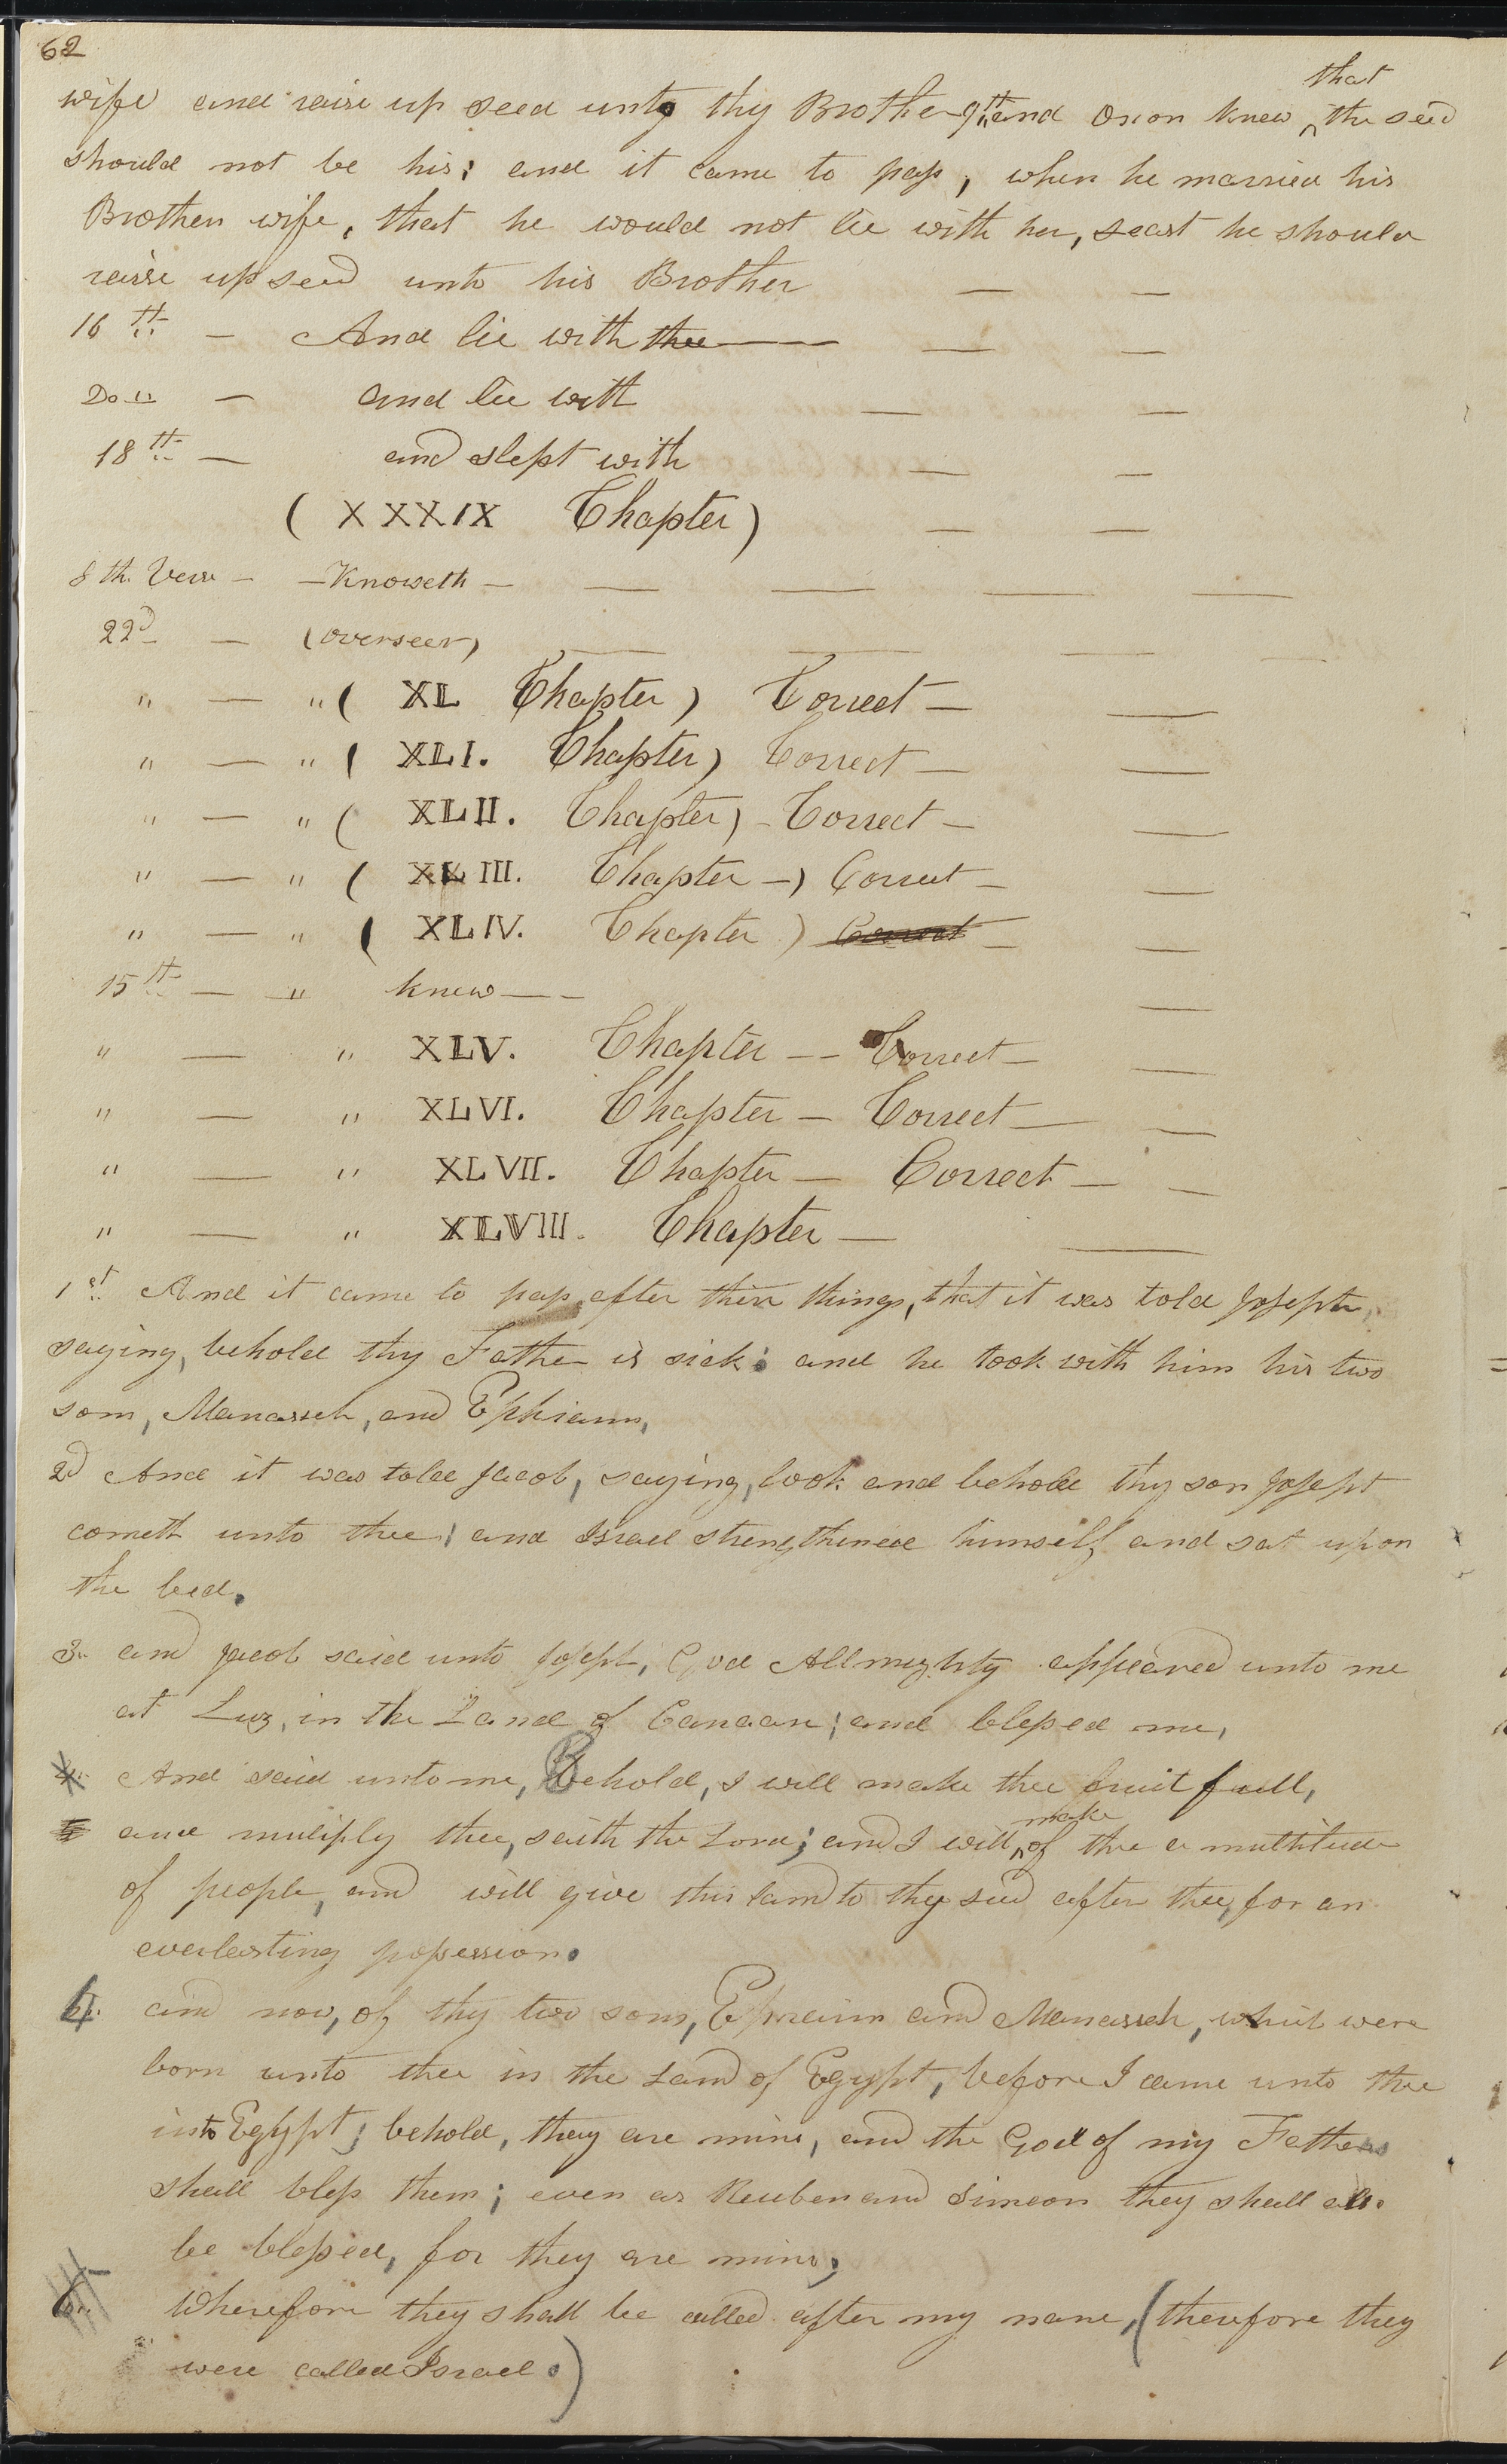 62
wife and raise up seed unto thy Brother, 9th and Onon knew that the seed
should not be his; and it came to pass, when he married his
Brothers wife, that he would not lie with her, least he should
raise up seed unto his Brother — —
16th — And lie with thee — — —
Do " — and lie with — —
18th — and slept with — —
( XXXIX Chapter) — —
8th. Verse — — Knoweth — — — — —
22d — (overseer) — — — —
" — " ( XL Chapter) Correct — —
" — " ( XLI. Chapter) Correct — —
" — " ( XLII. Chapter) — Correct — —
" — " ( XLIII. Chapter —) Correct — —
" — " ( XLIV. Chapter ) Correct — —
15th — " knew — — —
" — " XLV. Chapter — — Correct — —
" — " XLVI. Chapter — Correct — —
" — " XLVII. Chapter — Correct — —
" — " XLVIII. Chapter — —
1st And it came to pass, after these things, that it was told Joseph,
saying, behold thy Father is sick: and he took with him his two
sons, Manasseh, and Ephraim,
2d And it was told Jacob, saying, look and behold thy son Joseph
cometh unto thee; and Israel strengthened himself and sat upon
the bed.
3. and Jacob said unto Joseph, God Allmighty appeared unto me
at Luz, in the Land of Canaan; and blessed me,
4. And said unto me, Behold, I will make thee fruit full,
and muliply thee, saith the Lord; and I will make of thee a multitude
of people, and will give this land to thy seed after thee, for an
everlasting possession.
and now, of thy two sons, Ephraim and Manasseh, which were
born unto thee in the Land of Egypt, before I came unto thee
into Egypt; behold, they are mine, and the God of my Fathers
shall bless them; even as Reuben and Simeon they shall
be blessed, for they are mine;
6. Wherefore they shall be called after my name, (therefore they
were called Israel.)